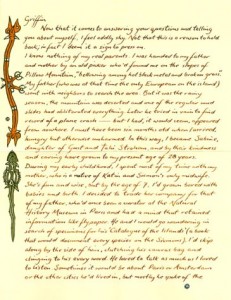 Griffin
Now that it comes to answering your questions and telling
you about myself, I feel oddly shy. Not that this is a reason to hold
back; in fact I deem it a sign to press on.
I know nothing of my real parents. I was handed to my father
and mother by an old potter who'd found me on the slopes of
Pillow Mountain, "bellowing among hot black rocks and broken grass".
My father (who was at that time the only European on the island)
went with neighbors to search the area. But it was the rainy
season, the mountain was deserted and one of the regular mud
slides had obliterated everything. Later he tried in vain to find
record of a plane crash — but I had, it would seem, appeared
from nowhere. I must have been six months old when I arrived,
hungry but otherwise unharmed. In this way, I became Sabine,
daughter of and Tahi Strohem, and by their kindness
and caring have grown to my present age of 28 years.
During my early childhood, I spent most of my time with my
mother, who is a native of Katin and Sicmon's only midwife.
She's firm and wise, but by the age of 7, I'd grown bored with
babies and birth. I decided to trade her company for that
of my father, who'd once been a curator at the Natural
History Museum in Paris and had a mind that retained
information like flypaper. He and I would go wandering in
search of specimens for his Catalogue of the Islands (a book
that would document every species in the Sicmons). I'd skip
along by the side of him, clutching his canvas bag and
clinging to his every word. He loved to talk as much as I loved
to listen. Sometimes it would be about Paris or Amsterdam
or the other cities he'd lived in, but mostly he spoke of the